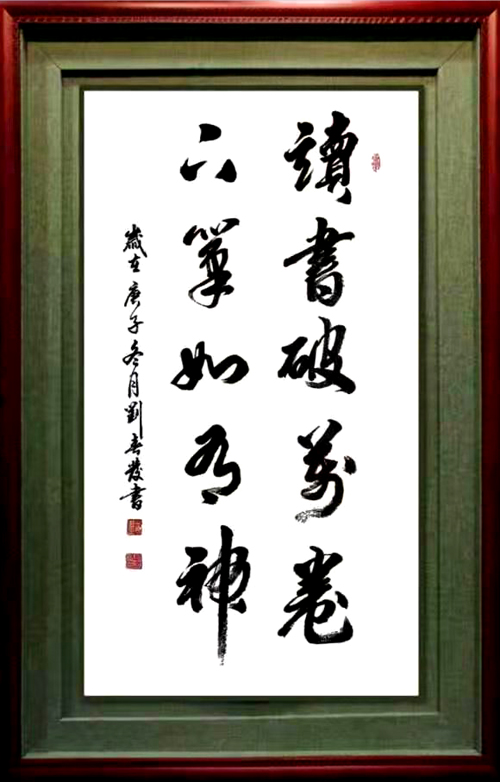 讀書破萬卷
下筆如有神
歲在庚子冬月劉春發書